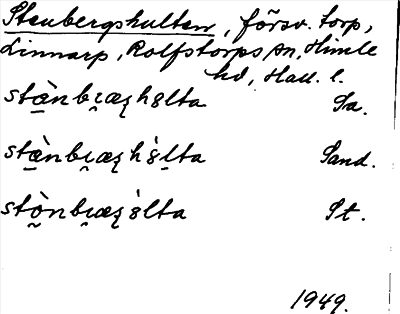 Stenbergshulten, försv. torp,
Linnarp, Rolfstorps sn, Himle
hd, Hall. l.
stæ̀nbɩ̯æʒhɞlta Sa.
stæ̀nbɩ̯æʒhɞ̀lta Sand.
stǫ̀nbɩ̯æʒɞ̀lta St.
1949.